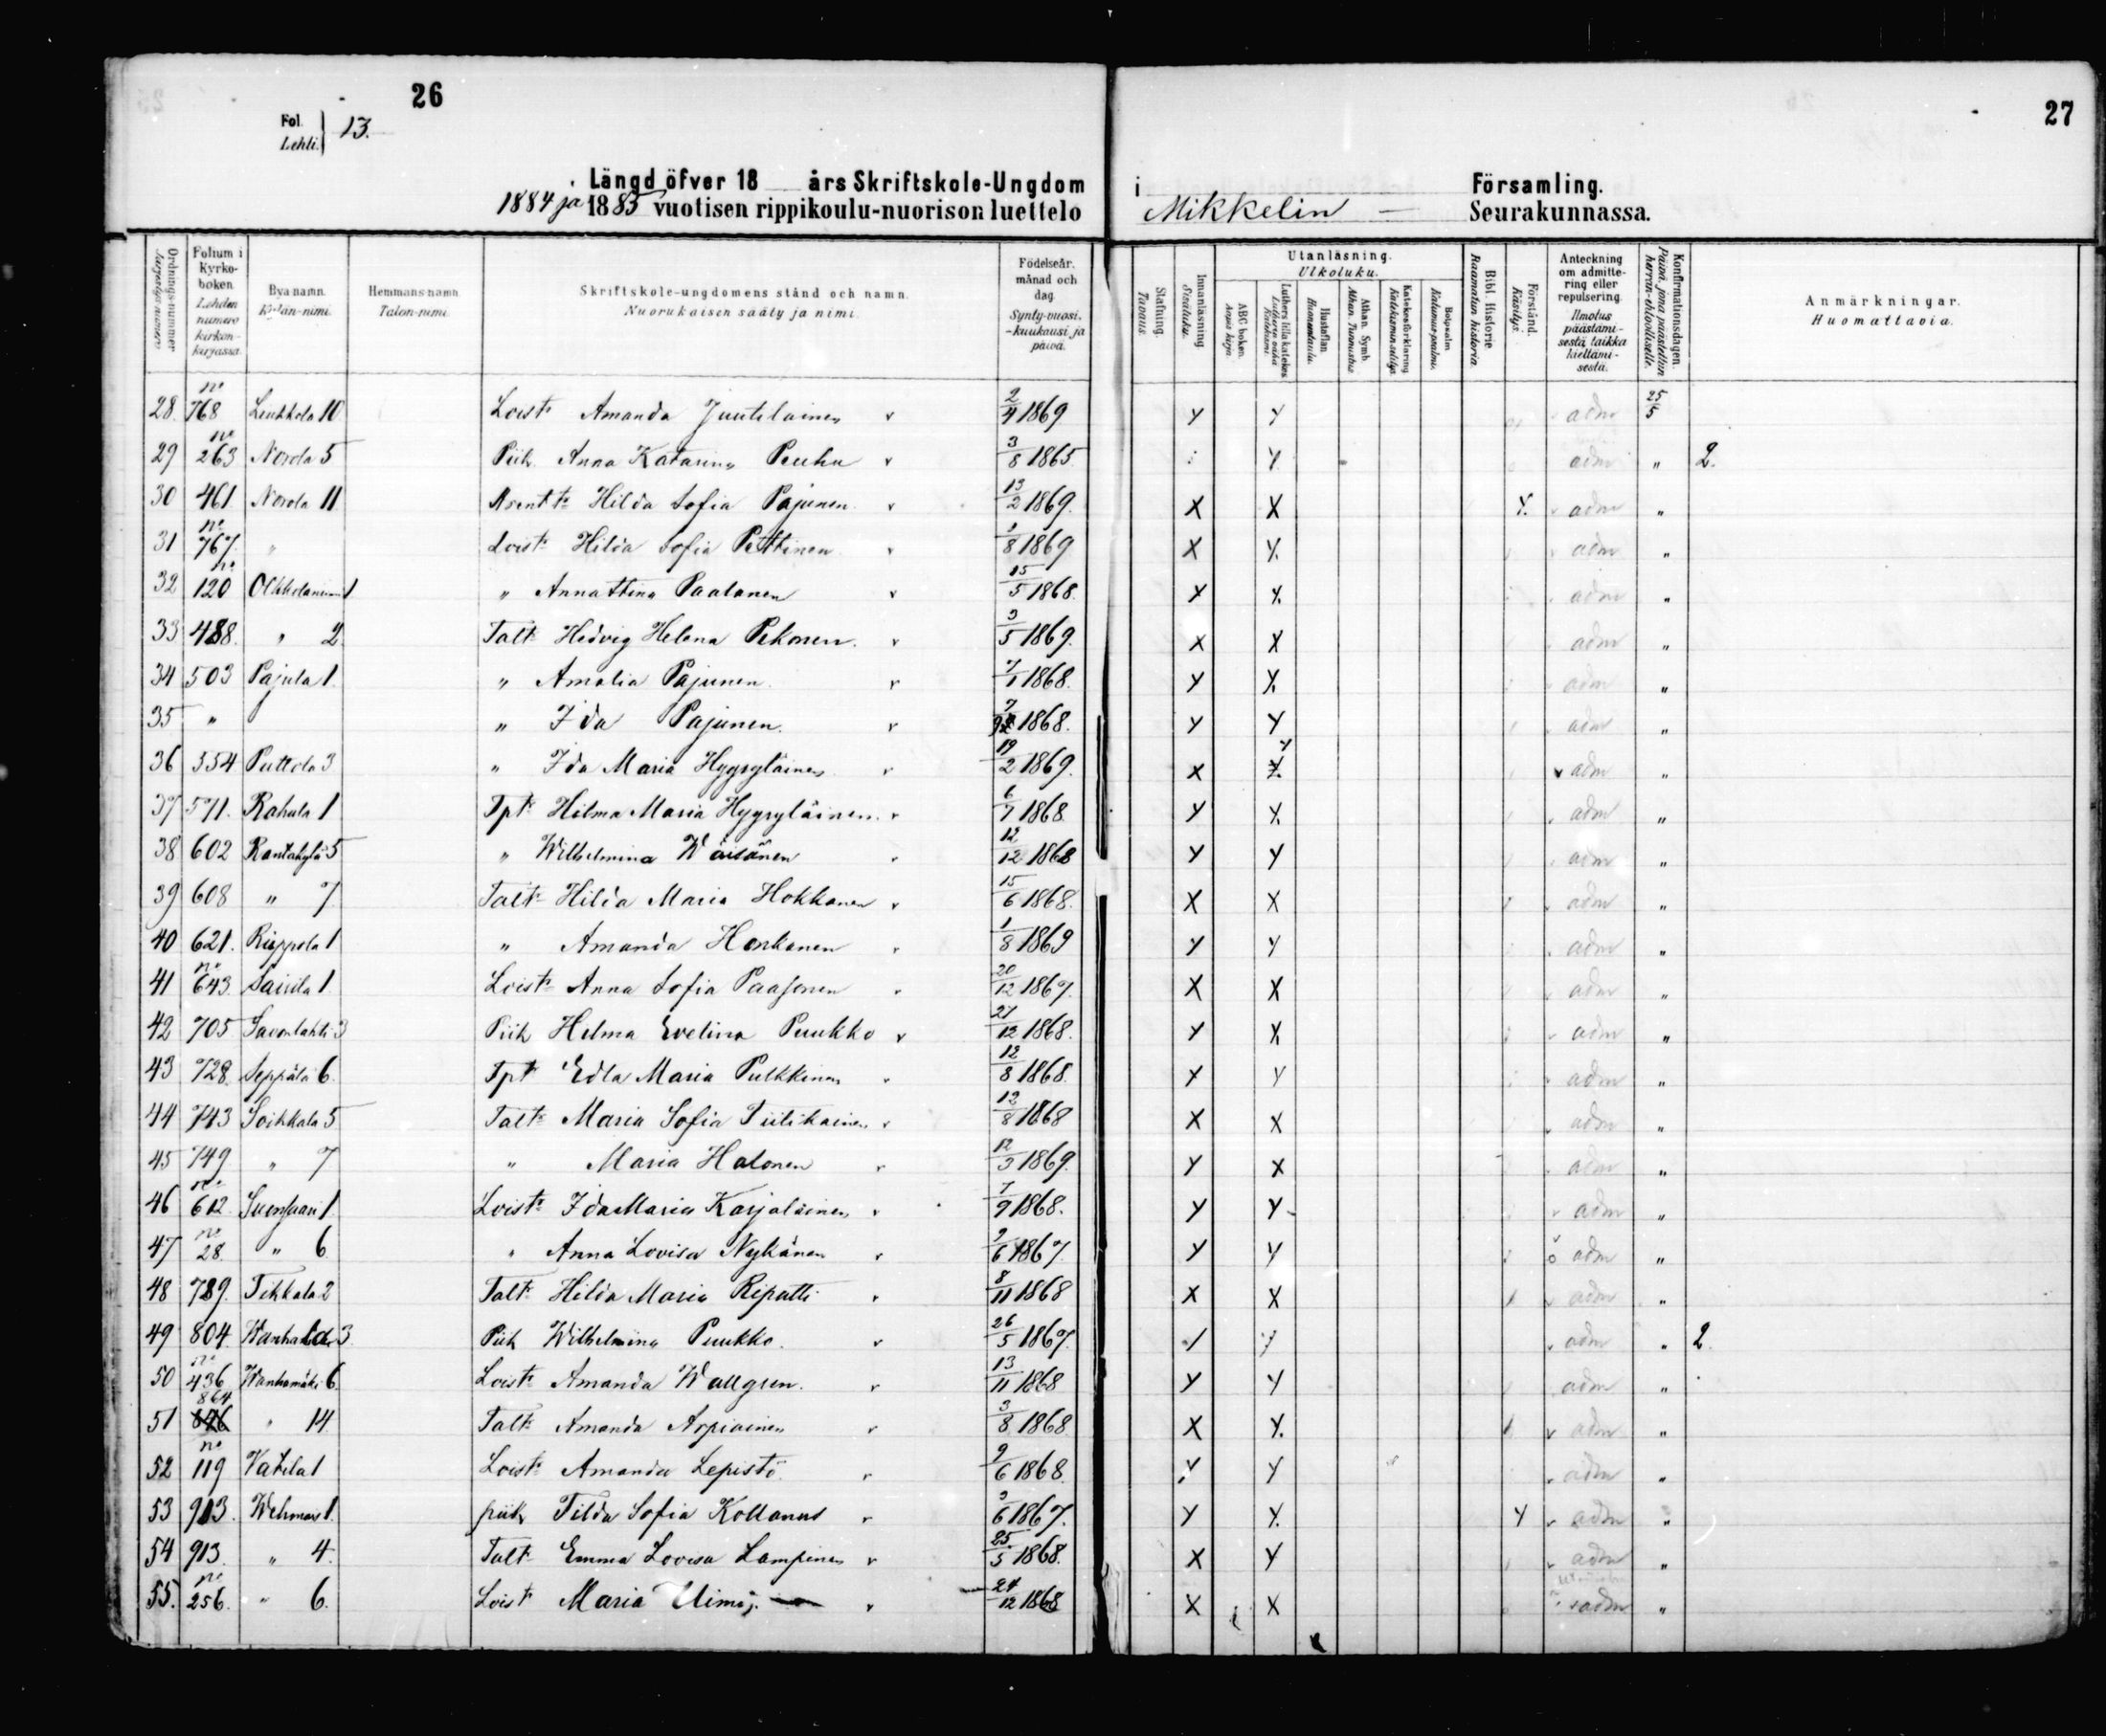 26
27
Fol. Lehti. } 13.
Längd öfver 18 års Skriftskole-Ungdom i Församling.
1884 ja 1885 vuotisen rippikoulu-nuorison luettelo Mikkelin — Seurakunnassa.
Ordnings-nummer Järjestys-numero
Folium i Kyrko-boken. Lehden numero kirkon-kirjassa.
Bya-namn. Kylän-nimi.
Hemmans-namn. Talon-nimi.
Skriftskole-ungdomens stånd och namn. Nuorukaisen sääty ja nimi.
Födelseår, månad och dag. Synty-vuosi, -kuukausi ja päivä.
Stafning. Tavaus.
Innanläsning. Sisäluku.
Utanläsning. Ulkoluku.
ABC boken.
Luthers lilla katekes
Hustaflan. Huoneentaulu.
Athan. Symb. Athan. Tunnustus
Katekesförklaring. Katekismin selitys.
Botpsalm. Katumus-psalmi.
Bibl. Historie Raamatun historia.
Förstånd. Käsitys.
Anteckning om admittering eller repulsering. Ilmotus päästämisestä taikka kieltämisestä.
Konfirmationsdagen. Päivä, jona päästettiin herran-ehtoolliselle.
Anmärkningar. Huomattavia.
28. no 768 10 Loist: Amanda Juutilainen v 2/4 1869 Y Y adm 25/5
29 no 263 Norola 5 Piik Anna Katarina Peuhu v 3/8 1865 Y adm „ 2.
30 461 Norola 11 Hilda Sofia Pajunen v 13/2 1869. X X Y. adm „
31 no 767. „ Loist: Hilda Sofia Pettinen v 1/8 1869 X Y. adm „
32 no 120 1 „ Anna Stina Paalanen v 15/5 1868. X Y. adm „
33 488. „ 2 Talt: Hedvig Helena Pekonen. v 3/5 1869. X X adm „
34 503 Pajula 1. „ Amalia Pajunen. v 7/1 1868. Y X. adm „
35 „ „ Ida Pajunen. v 1868. Y Y adm „
36 554 Puttola 3 „ Ida Maria Hyyryläinen v 19/2 1869. X Y adm „
37 571. Rahula 1 Tpt: Hilma Maria Hyyryläinen. v 6/7 1868 Y X. adm „
38 602 Rantakylä 5 „ Wilhelmina Wäisänen v 12/12 1868 Y Y adm „
39 608 „ 7 Talt: Hilda Maria Hokkanen v 15/6 1868. X X adm „
40 621. Riippola 1 „ Amanda Honkanen v 1/8 1869 Y Y adm „
41 no 643. Sairila 1. Loist: Anna Sofia Paasonen v 20/12 1867. X X adm „
42 705 Savonlahti 3 Piik Helma Evelina Puukko v 27/12 1868. Y X adm „
43 728. Seppälä 6. Tpt Edla Maria Pulkkinen v 12/8 1868. Y Y adm „
44 743 Soikkala 5 Talt: Maria Sofia Tiilikainen v 12/8 1868 X X adm „
45 749 „ 7 „ Maria Halonen v 12/3 1869. Y X adm „
46 no 612. Suonsaari 1. Loist: Ida Maria Karjalainen v 7/9 1868. Y Y adm „
47 no 28. „ 6 „ Anna Lovisa Nykänen v 2/6 1867. Y Y adm „
48 789. Tikkala 2 Talt: Hilda Maria Ripatti v 8/11 1868 X X adm „
49 804. 3. Piik Wilhelmina Puukko. v 26/5 1867. Y Y adm „ 2.
50 no 436 Wanhamäki 6 Loist: Amanda Wallgren. v 13/11 1868 Y Y adm „
51 864 „ 14. Talt: Amanda Arpiainen v 3/8 1868 X Y. adm „
52 no 119 Vatila 1 Loist: Amanda Lepistö v 9/6 1868. Y Y adm „
53 913. Wehmas 1. piik Tilda Sofia Kollanus v 3/6 1867. Y Y. Y adm „
54 913. „ 4. Talt: Emma Lovisa Lampinen v 25/5 1868. X Y adm „
55. no 256. „ 6. Loist Maria Uimaj. v 24/12 1868 X X adm „